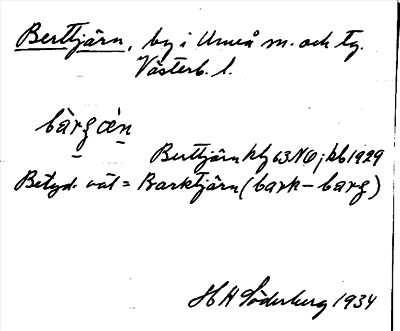 Berttjärn, by i Umeå sn. och tg.
Västerb. l.
bàrg æ̀n
Berttjärn kbl 63 NO; kb 1929
Betyd. väl = Barktjärn (bark - barg)
H A Söderberg 1934